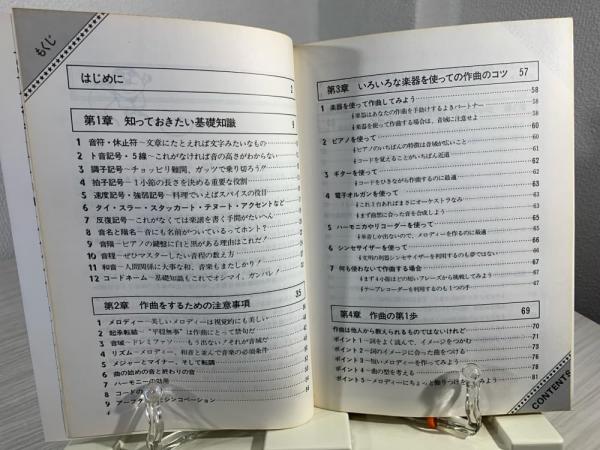 もくじ
はじめに
第1章 知っておきたい基礎知識
1 音符・休止符−文章にたとえれば文字みたいなもの
2 ト音記号・5線−これがなければ音の高さがわからない
3 調子記号−チョッピリ難関、ガッツで乗り切ろう!!
4 拍子記号−1小節の長さを決める重要な役割
5 速度記号・強弱記号−料理でいえばスパイスの役目
6 タイ・スラー・スタッカート・テヌート・アクセントなど
7 反復記号−これがなくては楽譜を書く手間がたいへん
8 音名と階名−音にも名前がついているってホント?
9 音階−ピアノの鍵盤に白と黒がある理由はこれだ!
10 音程−ぜひマスターしたい音程の数え方
11 和音−人間関係に大事な和、音楽もまたしかり!
12 コードネーム−基礎知識もこれでオシマイ、ガンバレ!
第2章 作曲をするための注意事項 35
1 メロディー−美しいメロディーは視覚的にも美しい
2 起承転結−“平穏無事”は作曲にとって禁句だ
3 音域−ドレミファソ…もう出ない!それが音域だ
4 リズム−メロディー、和音と並んで音楽の必須条件
5 メジャーとマイナー、そして転調
6 曲の始めの音と終わりの音
7 ハーモニーの効果
8 コードの
9 シンコペーション
第3章 いろいろな楽器を使っての作曲のコツ 57
1 楽器を使って作曲してみよう 58
楽器はあなたの作曲を手助けするよきパートナー 58
楽器を使って作曲する場合は、音域に注意せよ 58
2 ピアノを使って 60
ピアノのいちばんの特徴は音域が広いこと 60
コードを覚えることがいちばん近道 60
3 ギターを使って 62
コードをひきながら作曲するのに最適 62
4 電子オルガンを使って 64
これ1台あればまさにオーケストラなみ 64
まず曲想に合った音を合成しよう 64
5 ハーモニカやリコーダーを使って 65
単音しか出ないので、メロディーを作るのに最適 65
6 シンセサイザーを使って 66
文明の利器シンセサイザーを利用するのも夢ではない 66
7 何も使わないで作曲する場合 67
まず4小節ほどの短いフレーズから挑戦してみよう 67
テープレコーダーを利用するのも1つの手 67
第4章 作曲の第1歩 69
作曲は他人から教えられるものではないけれど 70
ポイント1−詞をよく読んで、イメージをつかむ
ポイント2−詞のイメージに合った曲をつける
ポイント3−短いメロディーを作ってみよう
ポイント4−曲の型を考える 78
ポイント5−メロディーにちょっと飾りつけを 81
CONTENTS